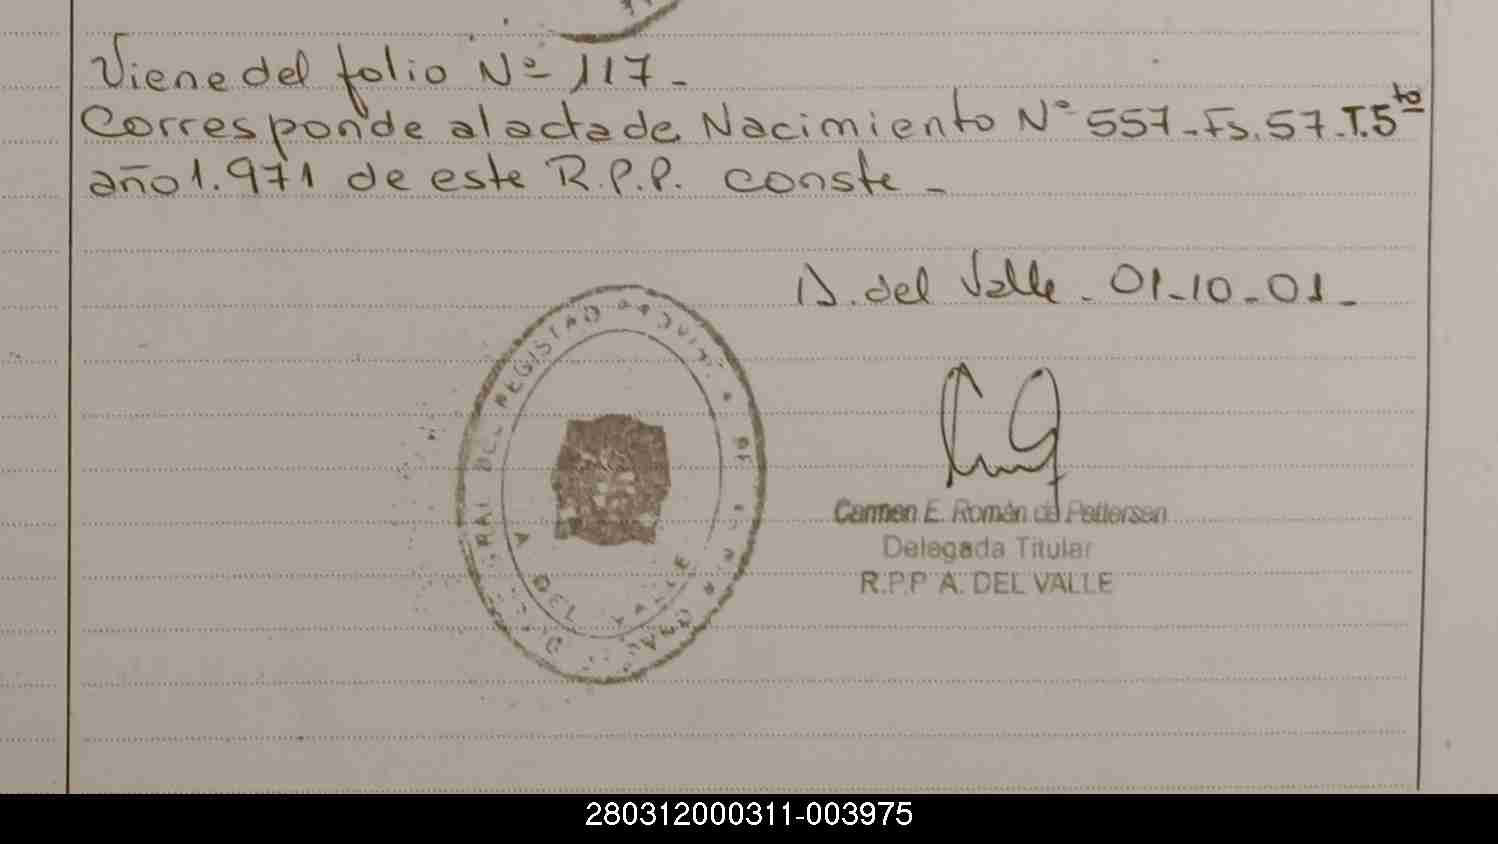 Viene del folio Nº 117-
Corresponde al acta de Nacimiento Nº 557-Fs.57-T.5to
año 1.971 de este R.P.P. conste-
A. del Valle - 01-10-01-
DEL REGISTRO
A DEL VALLE
Carmen E. Román de Pettersen
Delegada Titular
R.P.P A. DEL VALLE
280312000311-003975